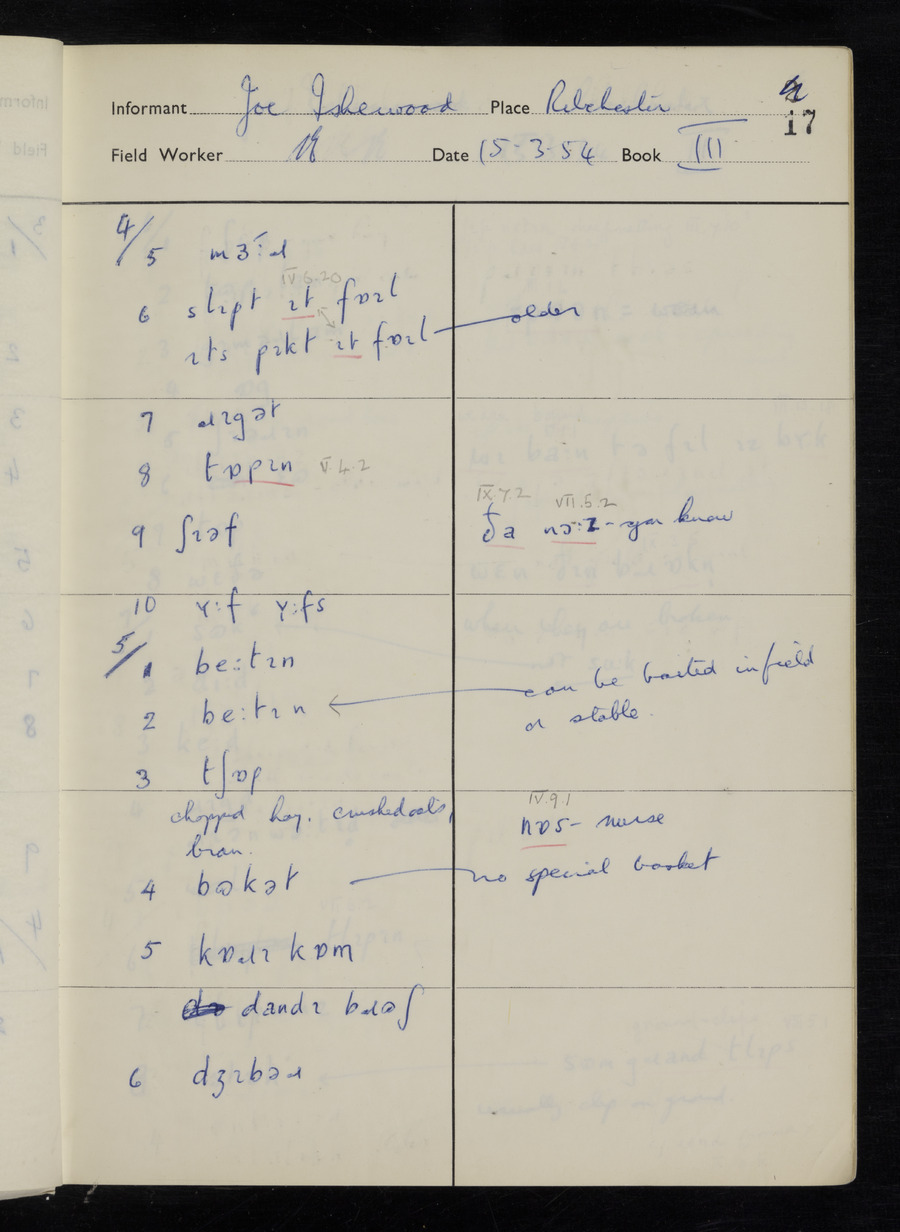 Informant Joe Isherwood Place Ribchester
17
Field Worker Date 15-3-54 Book III
4/
5 mɜ:ɹ
IV.6.20
6 slɪpt ɪt fɒɪl
ɪts pɪkt ɪt fɒɪl older
7 ɹɪgət
8 tɒpɪn V.4.2
IX.7.2 VII.5.2
9 ʃɪəf ða nɔ:z - you know
10 ʏ:f ʏ:fs
5/
1 be:tɪn
2 be:tɪn can be baited in field
or stable.
3 tʃɒp
chopped hay, crushed oats,
bran.
IV.9.1
nɒs - nurse
4 bɷkət no special basket
5 kɒɹɪ kɒm
dandɪ bɹɷʃ
6 dʒɪbəɹ